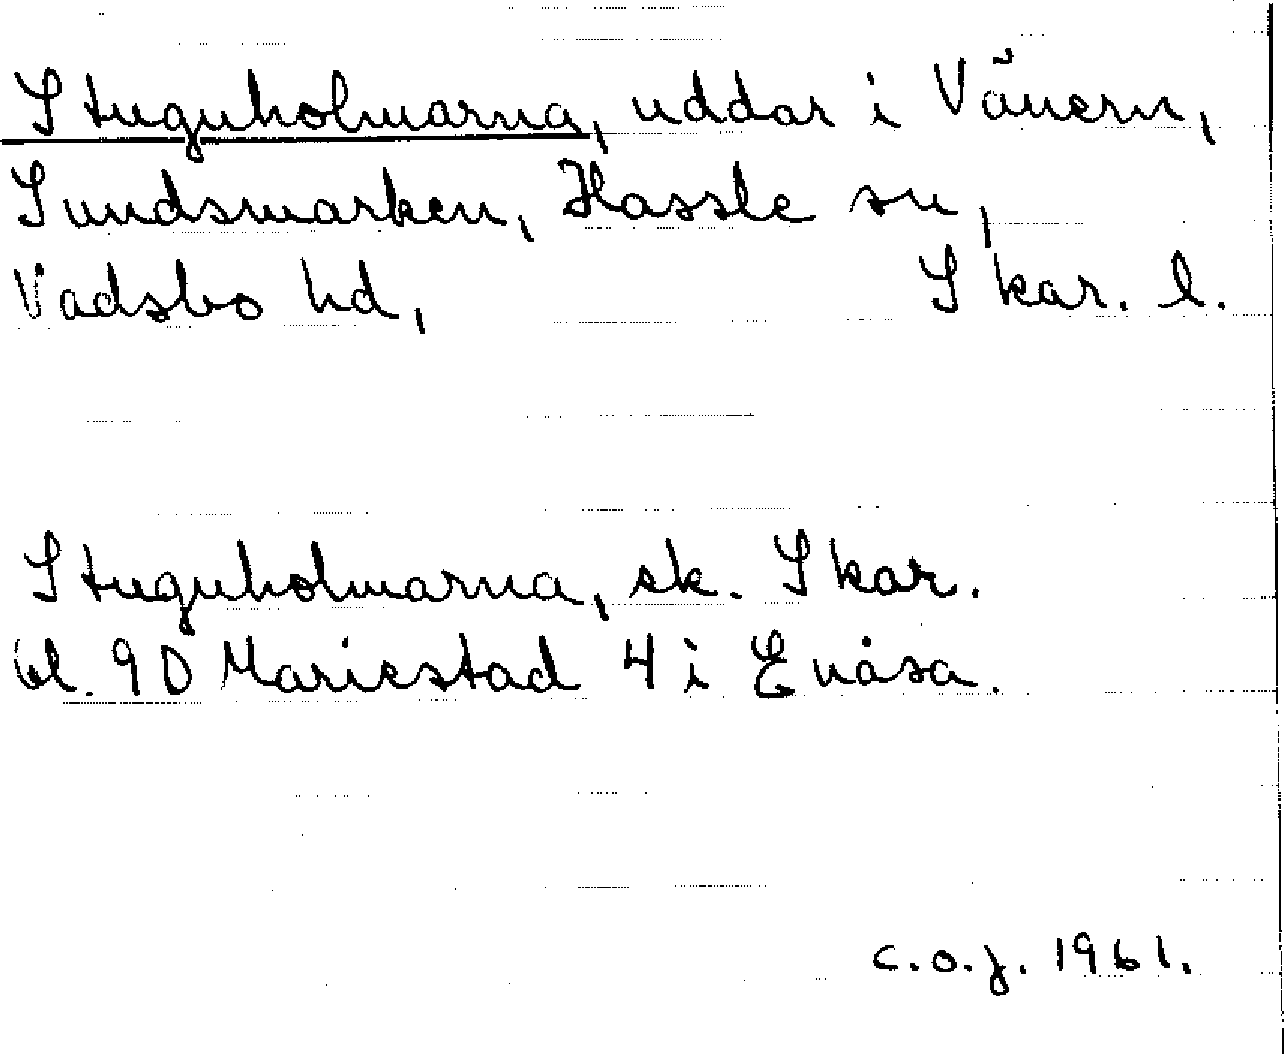 Stuguholmarna, uddar i Vänern,
Sundsmarken, Hassle sn,
Vadsbo hd, Skar. l.
Stuguholmarna, sk. Skar.
bl. 90 Mariestad 4 i Enåsa.
c.o.j. 1961.